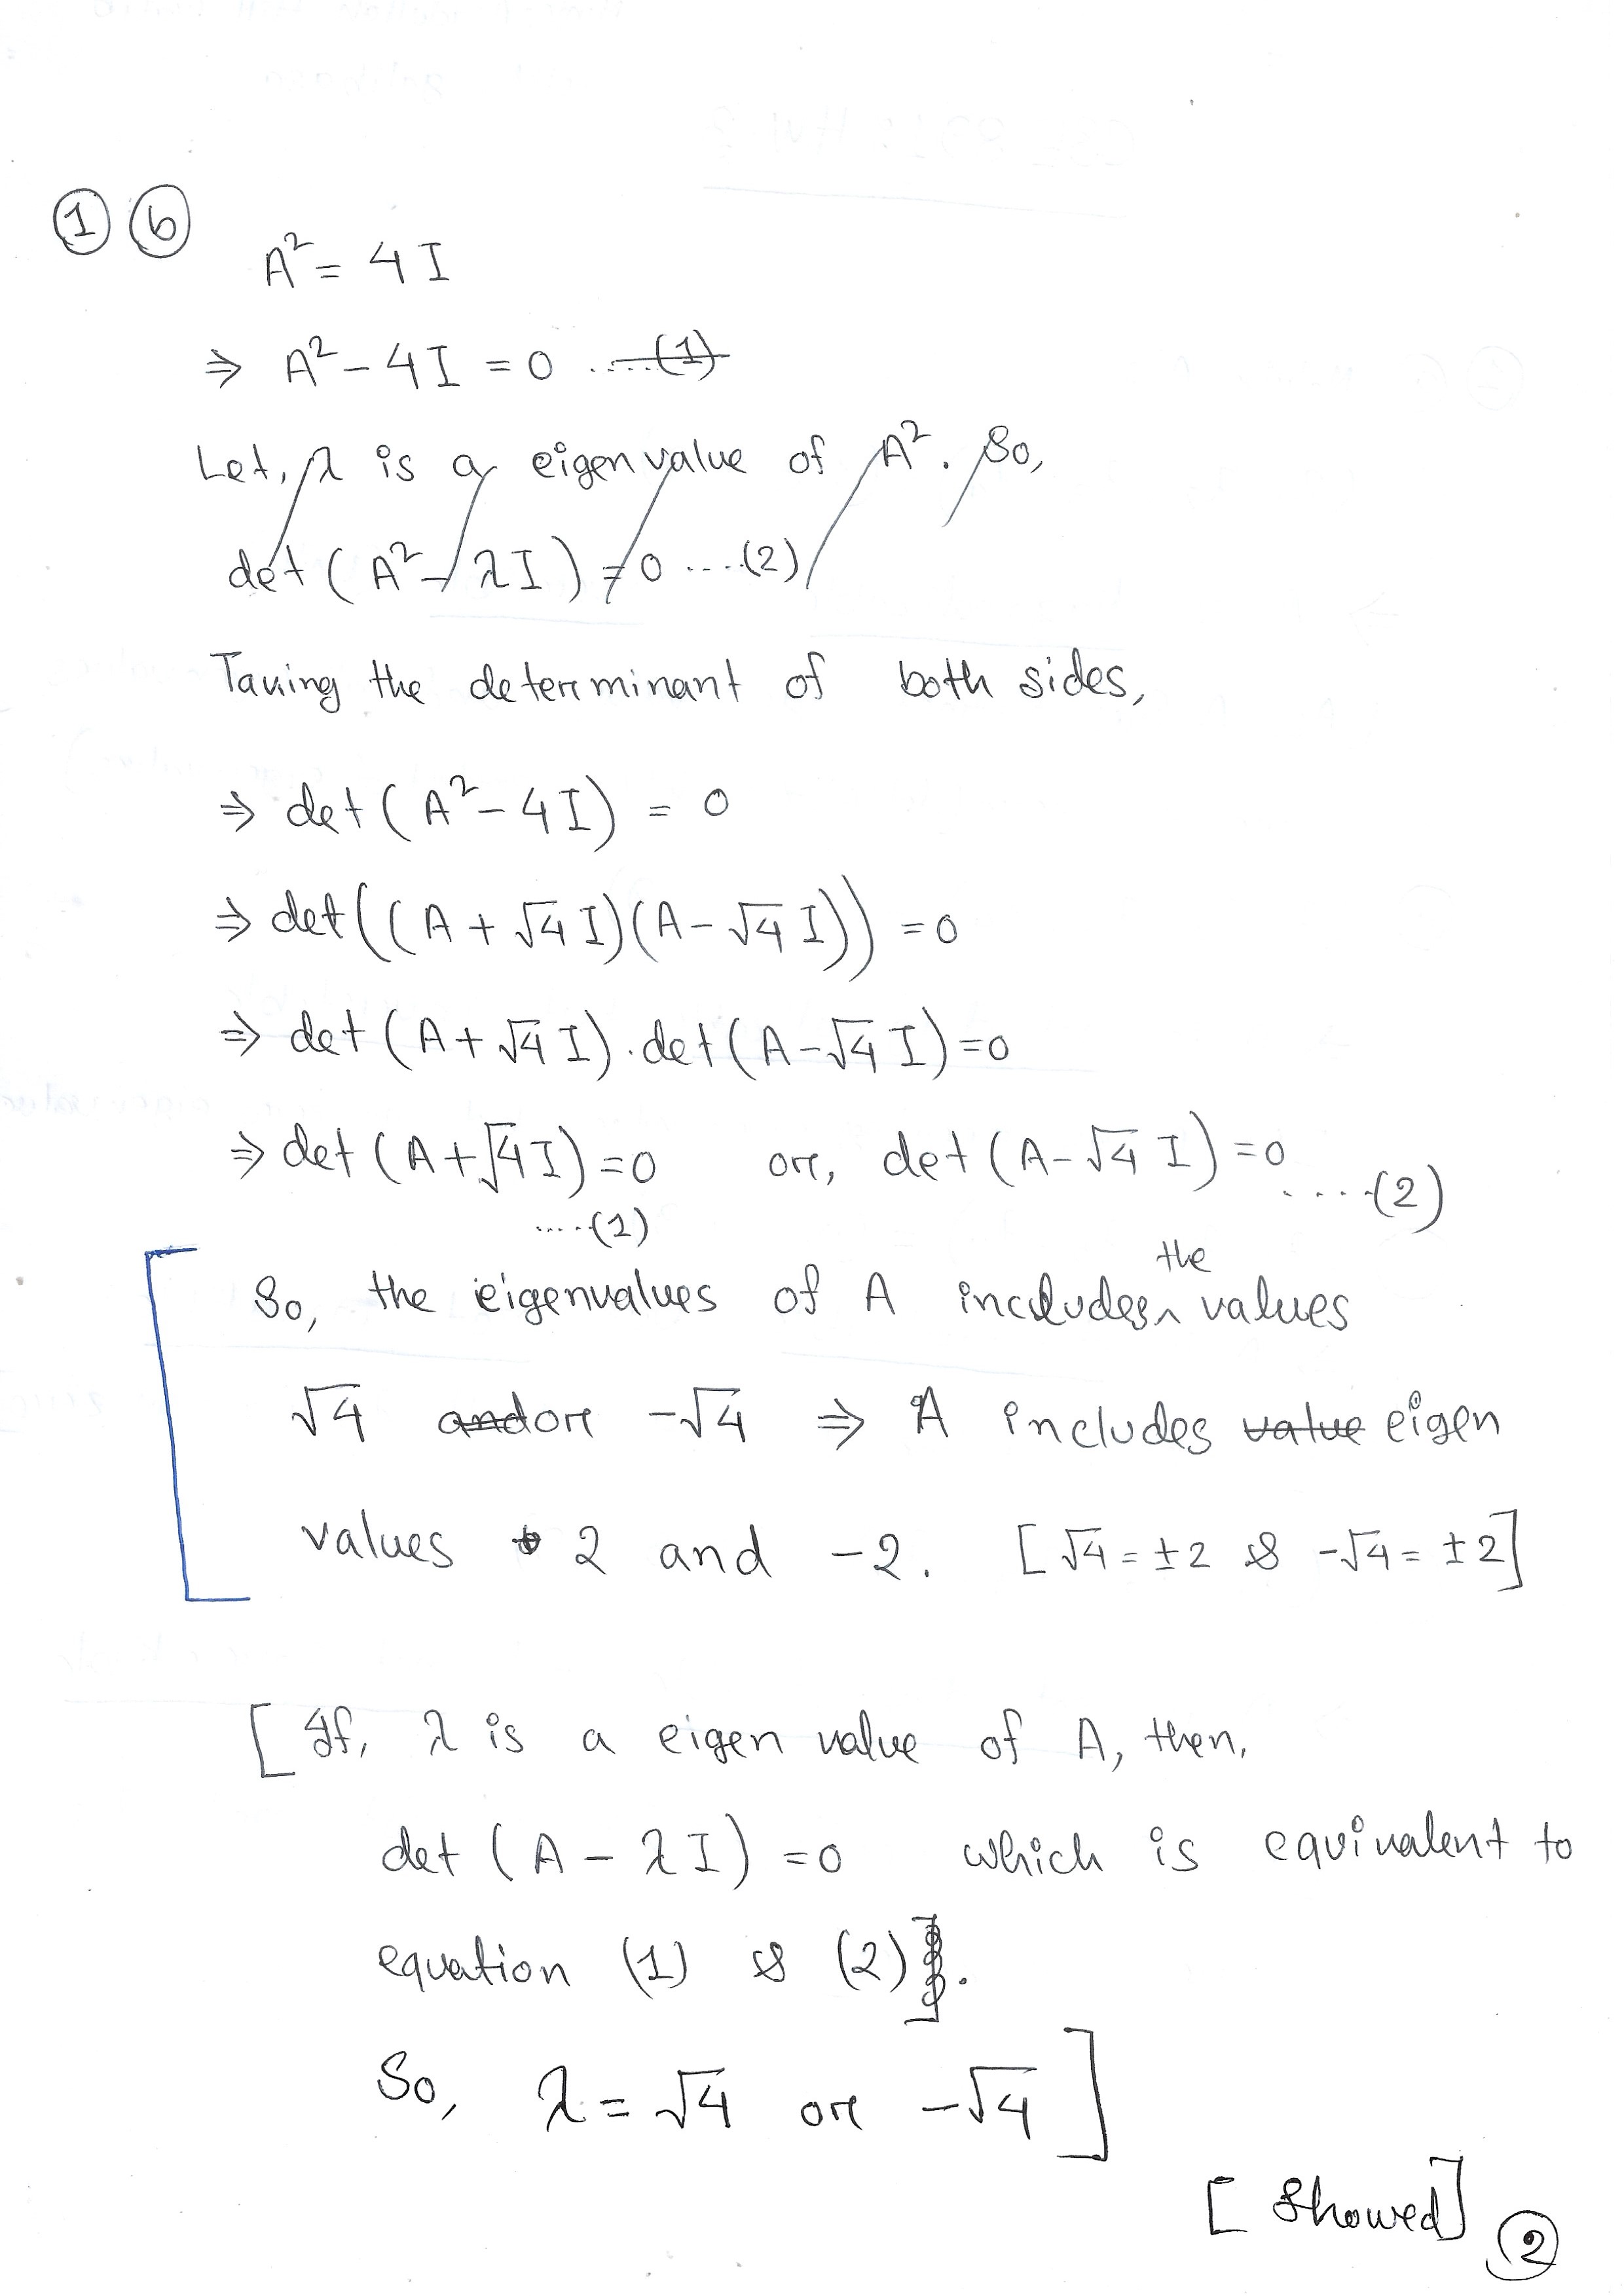 1 b
A² = 4I
⇒ A² - 4I = 0 ....(1)
Let, λ is a eigenvalue of A². So,
det(A² - λI) = 0 ....(2)
Taking the determinant of both sides,
⇒ det(A² - 4I) = 0
⇒ det((A + √4 I)(A - √4 I)) = 0
⇒ det(A + √4 I) . det(A - √4 I) = 0
⇒ det(A + √4 I) = 0 or, det(A - √4 I) = 0
.....(1) .....(2)
So, the eigenvalues of A includes the values
√4 and or -√4 ⇒ A includes value eigen
values 2 and -2. [√4 = ±2 & -√4 = ±2]
[If, λ is a eigen value of A, then,
det(A - λI) = 0 which is equivalent to
equation (1) & (2).
So, λ = √4 or -√4]
[Showed]
2